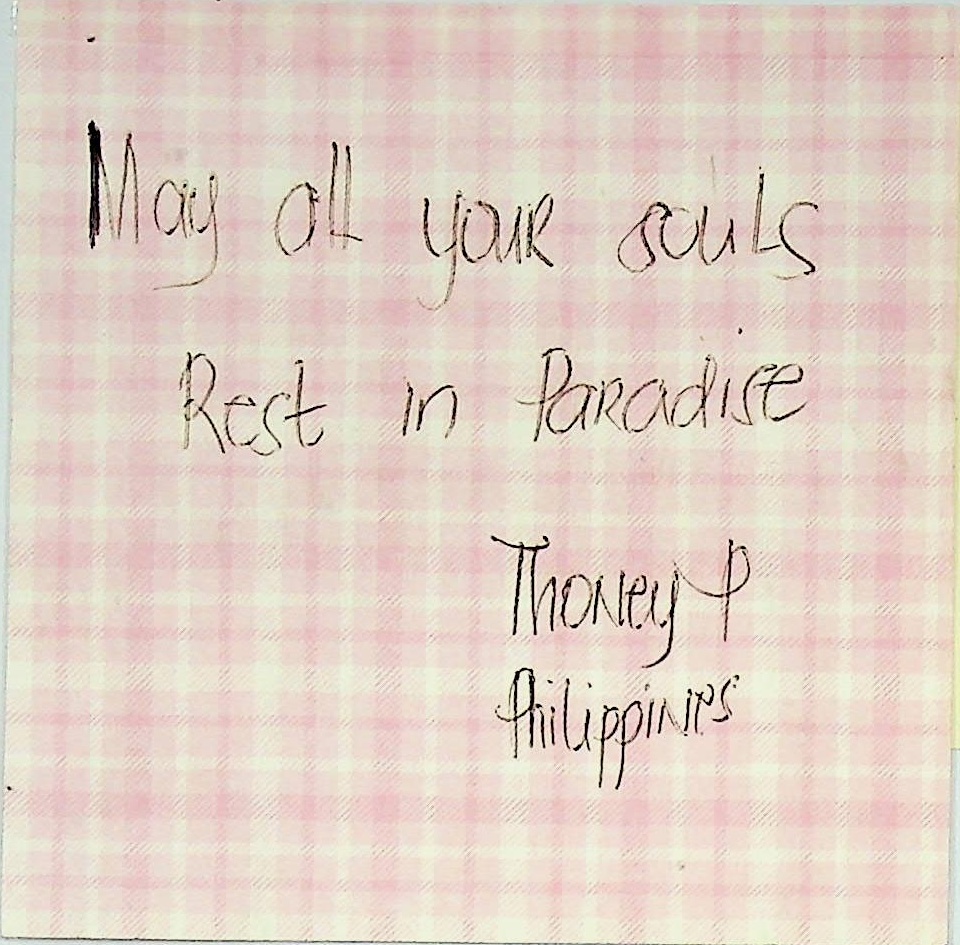 May all your souls
Rest in Paradise
Thoney P
Philippines